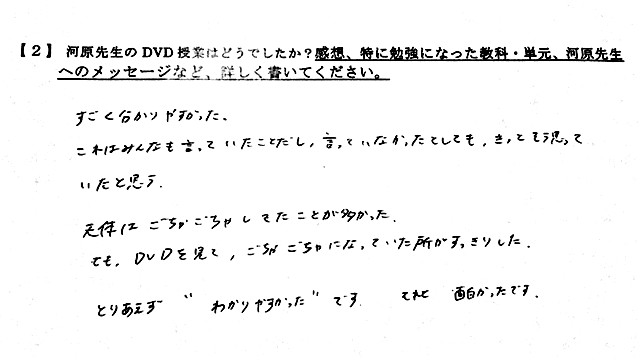 【２】河原先生のDVD授業はどうでしたか？感想、特に勉強になった教科・単元、河原先生
へのメッセージなど、詳しく書いてください。
すごく分かりやすかった。
これはみんなも言っていたことだし、言っていなかったてしても、きっとそう思って
いたと思う。
天体はごちゃごちゃしてたことが多かった。
でも、DVDを見て、ごちゃごちゃになっていた所がすっきりした。
とりあえず "わかりやすかった" です。 それと 面白かったです。